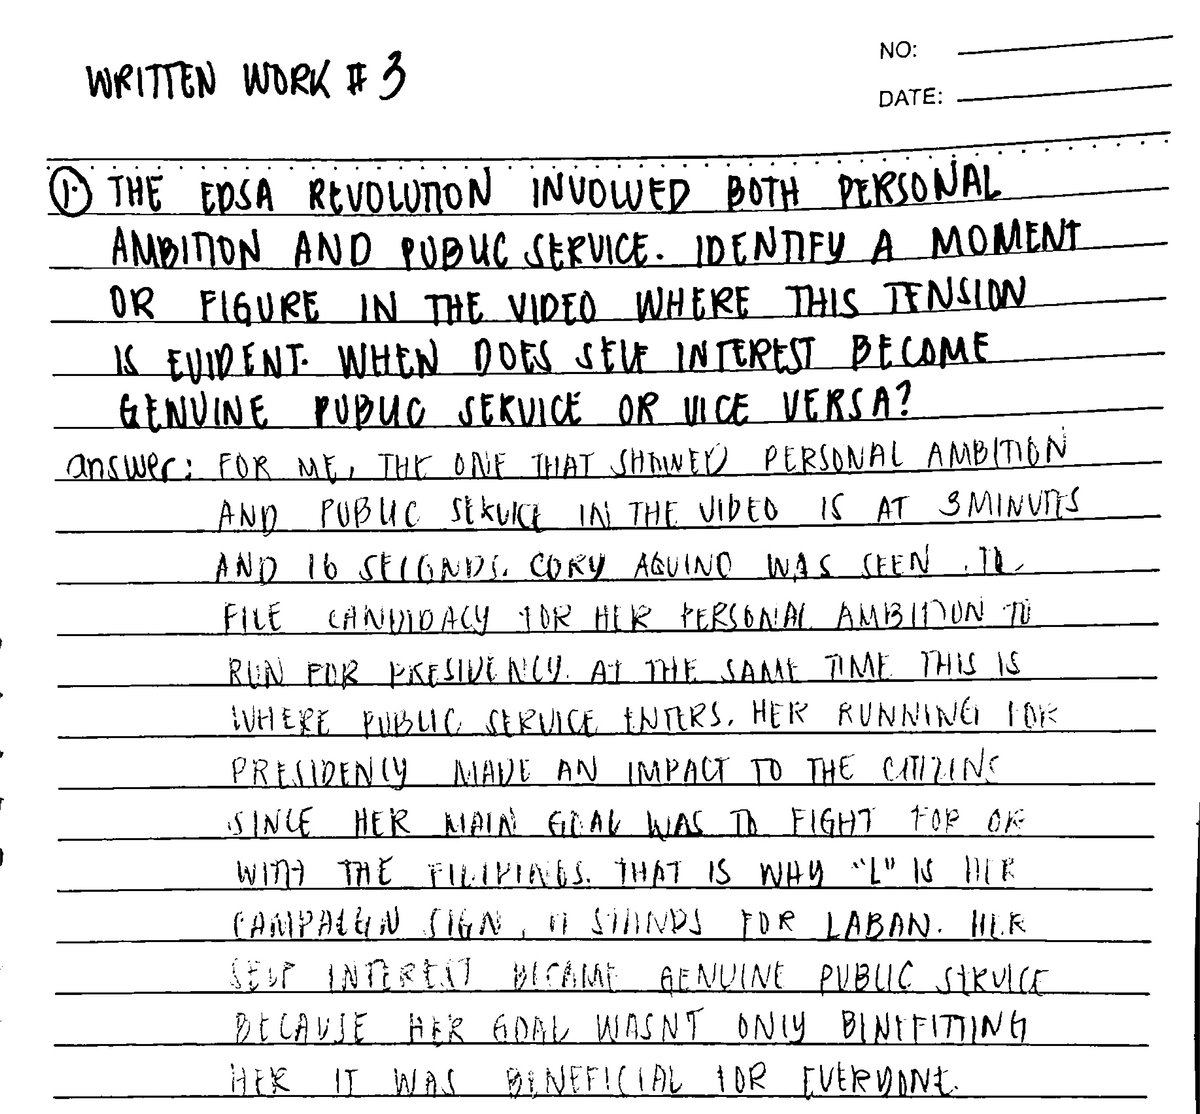 WRITTEN WORK # 3
NO:
DATE:
1. THE EDSA REVOLUTION INVOLVED BOTH PERSONAL
AMBITION AND PUBLIC SERVICE. IDENTIFY A MOMENT
OR FIGURE IN THE VIDEO WHERE THIS TENSION
IS EVIDENT. WHEN DOES SELF INTEREST BECOME
GENUINE PUBLIC SERVICE OR VICE VERSA?
answer: FOR ME, THE ONE THAT SHOWED PERSONAL AMBITION
AND PUBLIC SERVICE IN THE VIDEO IS AT 3 MINUTES
AND 16 SECONDS. CORY AQUINO WAS SEEN TO
FILE CANDIDACY FOR HER PERSONAL AMBITION TO
RUN FOR PRESIDENCY. AT THE SAME TIME THIS IS
WHERE PUBLIC SERVICE ENTERS. HER RUNNING FOR
PRESIDENCY MADE AN IMPACT TO THE CITIZENS
SINCE HER MAIN GOAL WAS TO FIGHT FOR OR
WITH THE FILIPINOS. THAT IS WHY "L" IS HER
CAMPAIGN SIGN, IT STANDS FOR LABAN. HER
SELF INTEREST BECAME GENUINE PUBLIC SERVICE
BECAUSE HER GOAL WASNT ONLY BINEFITTING
HER IT WAS BENEFICIAL FOR EVERYONE.